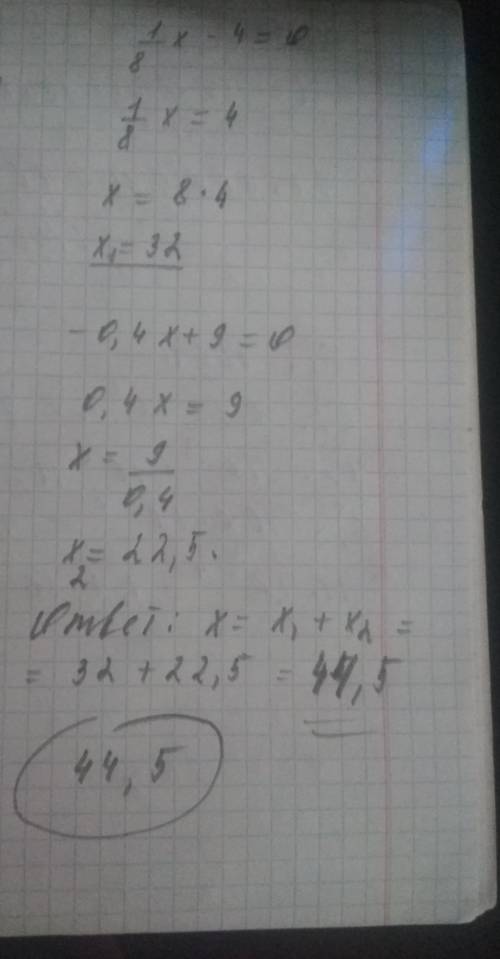 1/8 x - 4 = 0
1/8 x = 4
x = 8 · 4
x₁ = 32
- 0,4 x + 9 = 0
0,4 x = 9
x = 9/0,4
x₂ = 22,5.
Ответ: x = x₁ + x₂ =
= 32 + 22,5 = 44,5
44,5